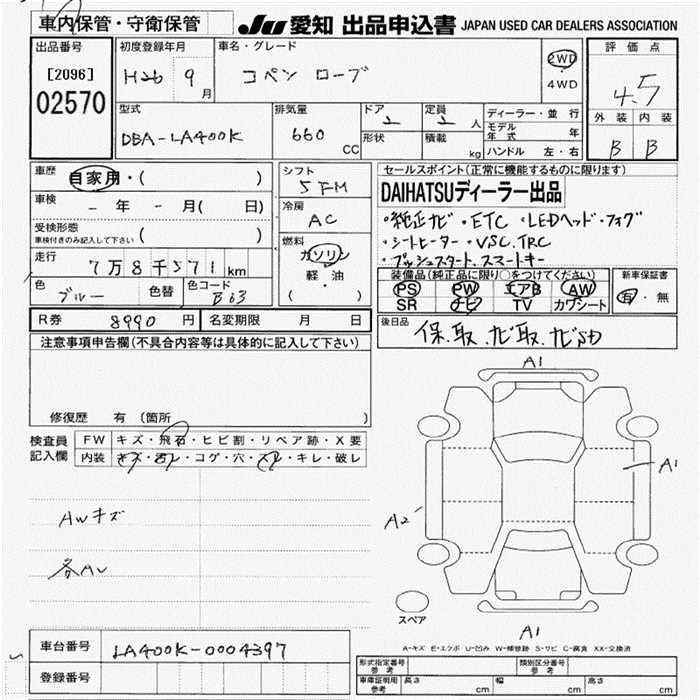 車内保管・守衛保管
JU 愛知 出品申込書 JAPAN USED CAR DEALERS ASSOCIATION
出品番号
[2096]
02570
初度登録年月
H26 9月
車名・グレード
コペン ローブ
2WD
・
4WD
評価点
4.5
外装 内装
B B
型式
DBA-LA400K
排気量
660 CC
ドア
2
形状
定員
2 人
積載
kg
ディーラー・並行
モデル年式 年
ハンドル 左・右
車歴
自家用・( )
車検
- 年 - 月( 日)
受検形態
車検付きのみ記入して下さい ( )
走行
7万8千571km
色
ブルー 色替
色コード
B63
シフト
5FM
冷房
AC
燃料
ガソリン
軽・油
( )
セールスポイント(正常に機能するものに限ります)
DAIHATSUディーラー出品
・純正ナビ・ETC・LEDヘッド・フォグ
・シートヒーター・VSC.TRC
・プッシュスタート.スマートキー
装備品(純正品に限り○をつけてください)
PS PW エアB AW
SR ナビ TV カワシート
新車保証書
有・無
R券 8990 円 名変期限 月 日
後日品
保.取.ナビ取.ナビSD
注意事項申告欄(不具合内容等は具体的に記入して下さい)
修復歴 有 (箇所 )
検査員
記入欄
FW キズ・飛石・ヒビ割・リペア跡・X要
内装 キズ・汚レ・コゲ・穴・スレ・キレ・破レ
AWキズ
各AU
A1
A1
A2
スペア
A1
A-キズ E-エクボ U-凹み W-補修跡 S-サビ C-腐食 XX-交換済
車台番号 LA400K-0004397
登録番号
形式指定番号
参考
類別区分番号
参考
車庫証明用
参考
長さ cm 幅 cm 高さ cm